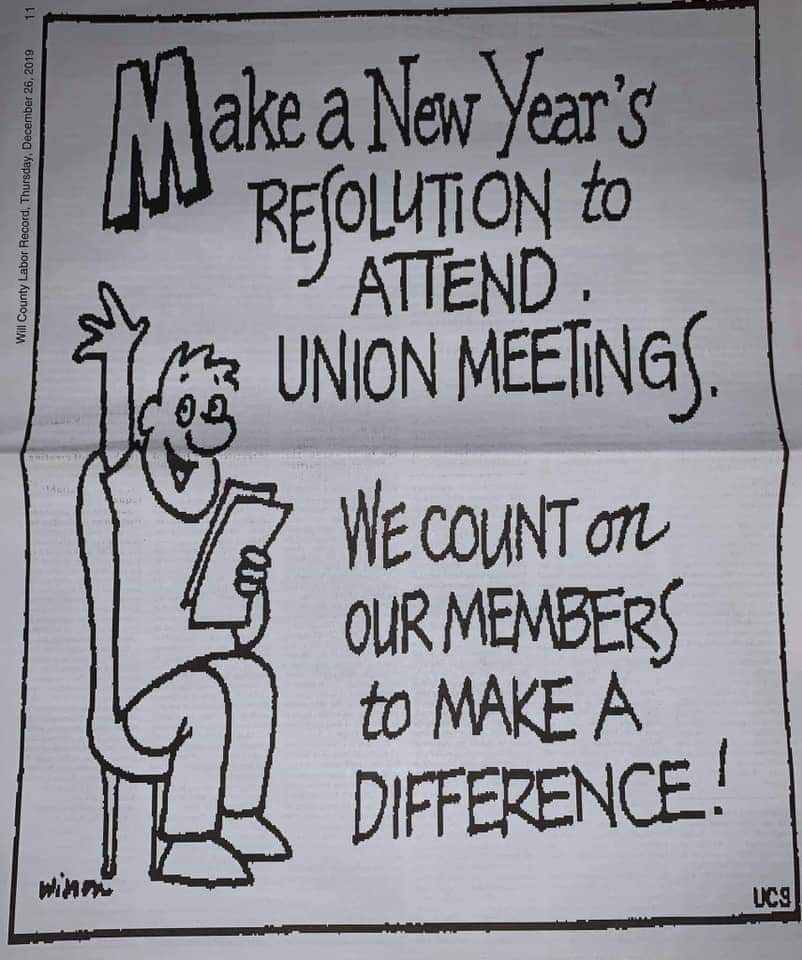 Will County Labor Record, Thursday, December 26, 2019 11
Make a New Year's
RESOLUTION to
ATTEND
UNION MEETINGS.
WE COUNT on
OUR MEMBERS
to MAKE A
DIFFERENCE!
UCS